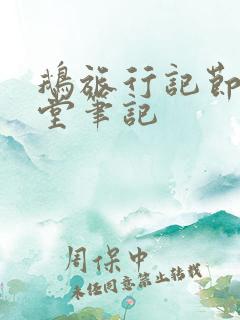 鵝旅行記節
堂筆記
周保中
未经同意禁止转载